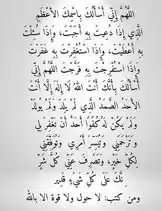 اللَّهُمَّ إِنِّي أَسْأَلُكَ بِاسْمِكَ الأَعْظَمِ
الَّذِي إِذَا دُعِيتَ بِهِ أَجَبْتَ، وَإِذَا سُئِلْتَ
بِهِ أَعْطَيْتَ، وَإِذَا اسْتُغْفِرْتَ بِهِ غَفَرْتَ
وَإِذَا اسْتُفْرِجْتَ بِهِ فَرَّجْتَ اللَّهُمَّ إِنِّي
أَسْأَلُكَ بِأَنَّكَ أَنْتَ اللهُ لَا إِلَهَ إِلَّا أَنْتَ
الأَحَدُ الصَّمَدُ الَّذِي لَمْ يَلِدْ وَلَمْ يُولَدْ
وَلَمْ يَكُنْ لَهُ كُفُوًا أَحَدٌ أَنْ تَغْفِرَ لِي
وَتَرْحَمَنِي وَتُيَسِّرَ أَمْرِي وَتُوَفِّقَنِي
لِكُلِّ خَيْرٍ، وَتَصْرِفَ عَنِّي كُلَّ شَرٍّ
إِنَّكَ عَلَى كُلِّ شَيْءٍ قَدِيرٌ
ومن كتب: لا حول ولا قوة الا بالله